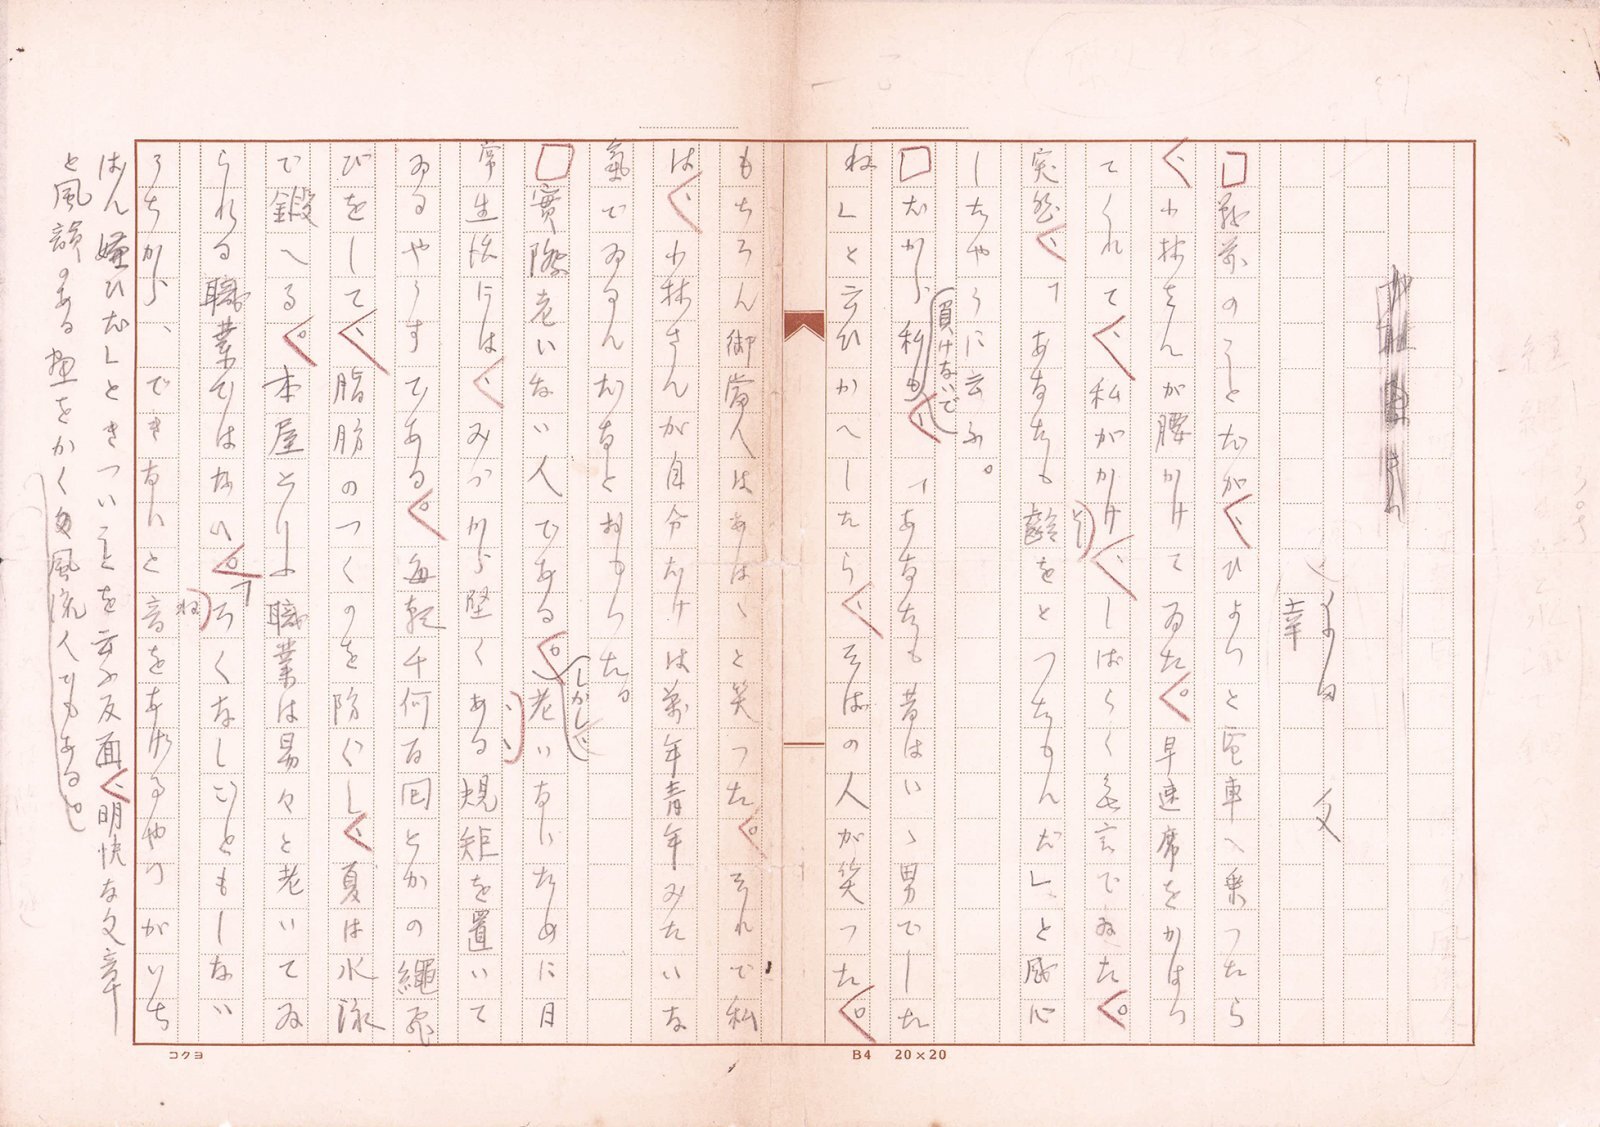 幸
文
戰前のことだが、ひよつと電車へ乗つたら
、小林さんが腰かけてゐた。早速席をかはつ
てくれて、私がかけ、しばらく無言でゐた。
突然、「あなたも齢をとつたもんだ」と感心
したやうに云ふ。
だから私も、「あなたも昔はいゝ男でした
負けないで
ね」と云ひかへしたら、そばの人が笑つた。
もちろん御當人はあはゝと笑つた。それで私
は、小林さんが自分だけは萬年青年みたいな
氣でゐるんだなとおもつた。
實際老いない人である。老いないために日
しかし、
常生活には、みづから堅くある規矩を置いて
ゐるやうすである。毎朝千何百回とかの繩飛
びをして、脂肪のつくのを防ぐし、夏は水泳
で鍛へる。本屋といふ職業は易々と老いてゐ
られる職業ではない。「ろくなしごともしない
うちから、できないと音をあげるやつがいち
ね
ばん嫌ひだ」ときついことを云ふ反面、明快な文章
と風韻のある画をかく風流人でもある。
コクヨ
B4 20×20